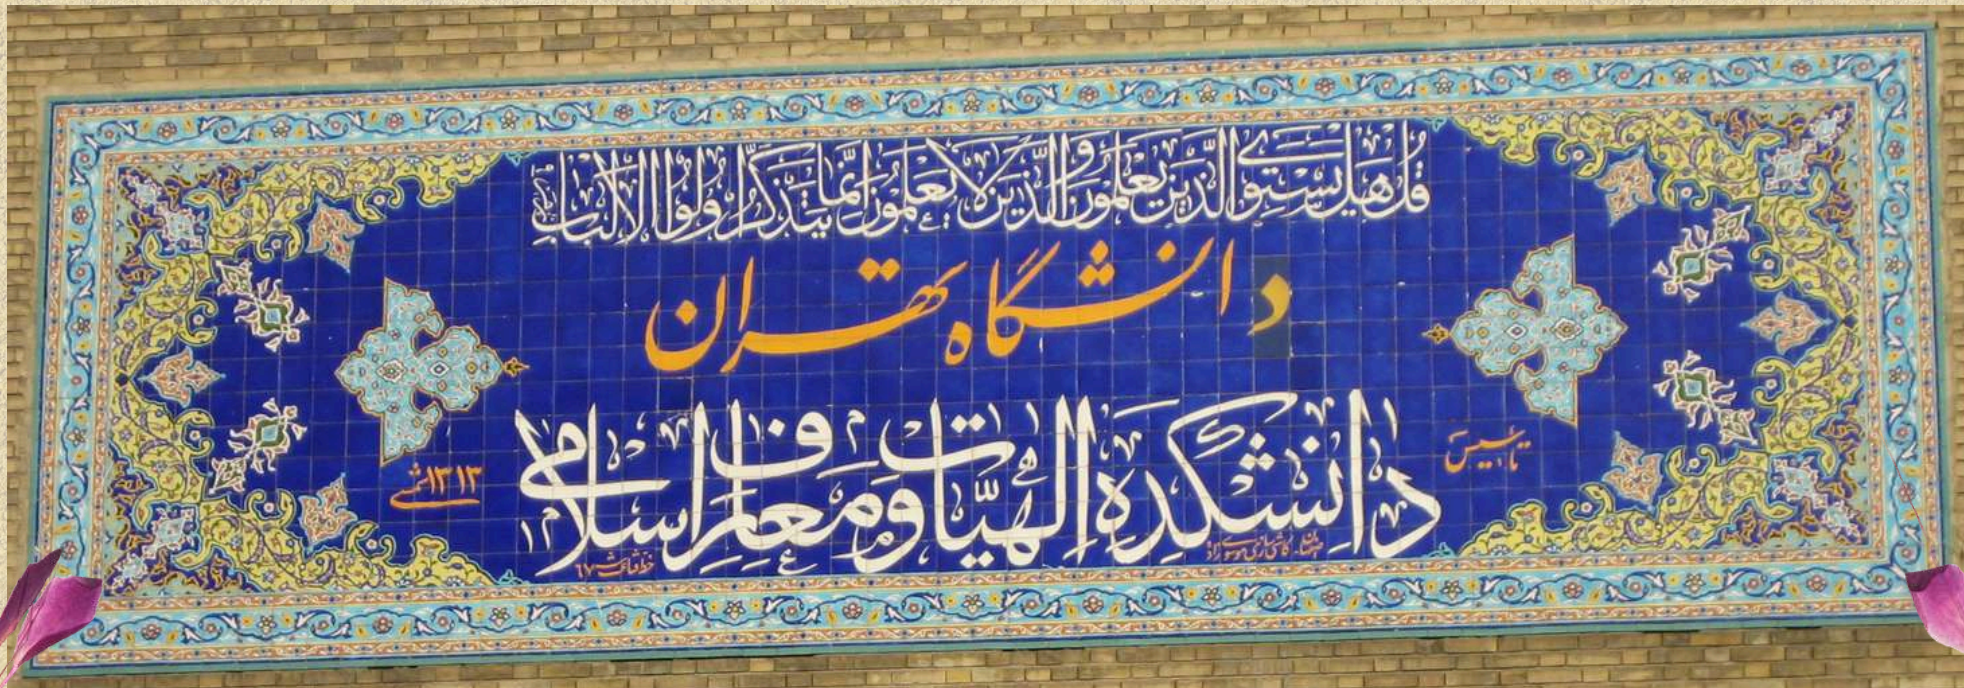 قُل هَل یَستَوِی الَّذینَ یَعلَمُونَ وَ الَّذینَ لا یَعلَمُونَ اِنَّما یَتَذَکَّرُ اُولُوا الاَلباب
دانشگاه تهران
دانشکده الهیّات و معارف اسلامی
تأسیس
۱۳۱۳ شمسی